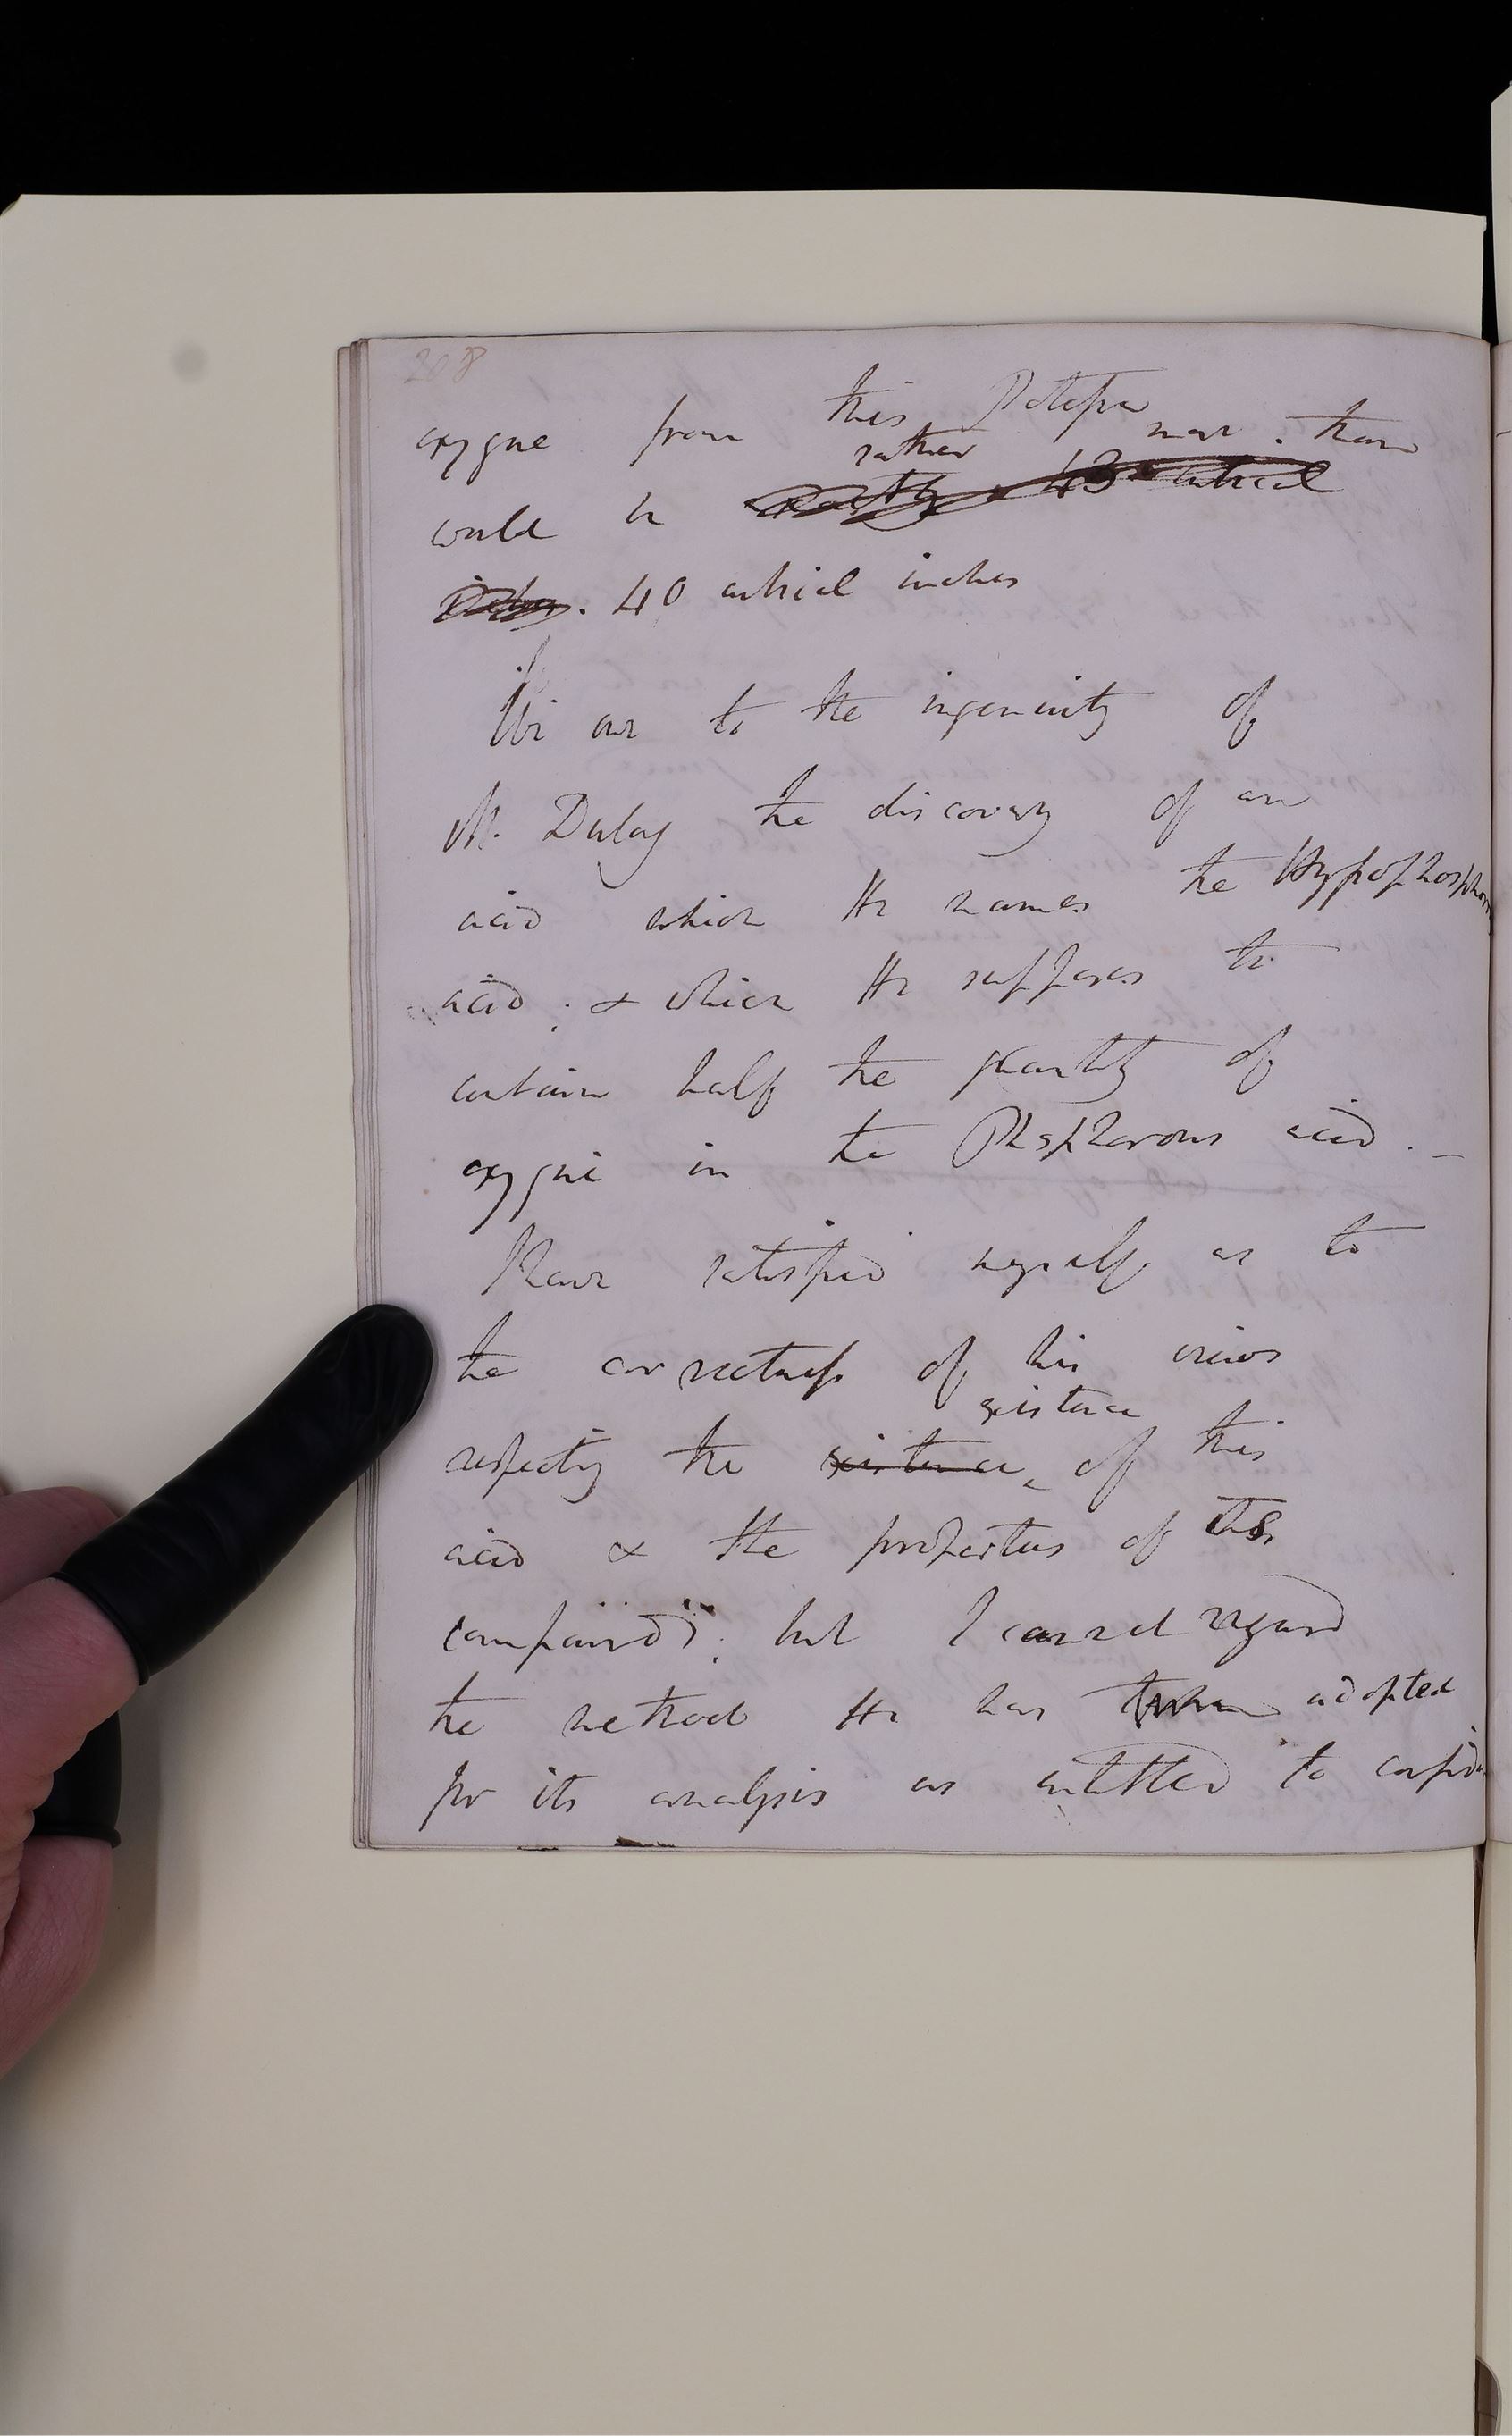 208
oxygne from this Potassa
rather more than
would be 43 cubical
Inches. 40 cubical inches
We owe to the ingenuity of
M. Dulong the discovery of an
acid which He names the Hypophosphorous
acid; & which He supposes to
contain half the quantity of
oxygne in the Phosphorous acid. –
I have satisfied myself as to
the correctness of his views
existence
respecting the existence of this
acid & the properties of its
compounds; but I cannot regard
the method He has adopted
for its analysis as entitled to confide